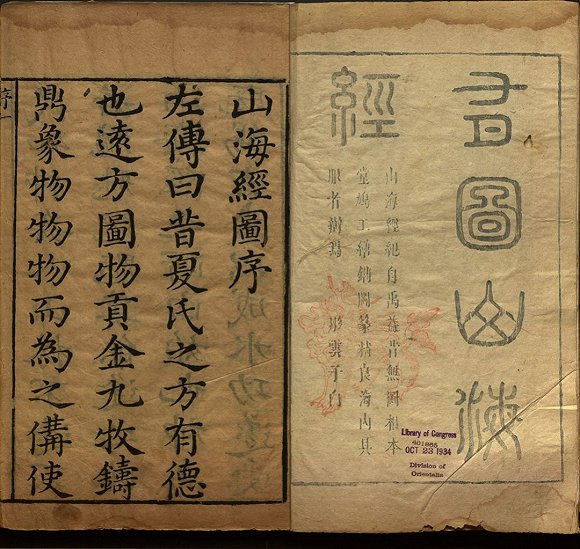 有圖山海
經
山海經紀自禹益昔無圖相本
堂鳩工繪鐫圖篆精良海內具
眼者辦焉
Library of Congress
OCT 23 1934
Division of
Orientalia
山海經圖序
左傳曰昔夏氏之方有德
也遠方圖物貢金九牧鑄
鼎象物物物而為之備使
序一